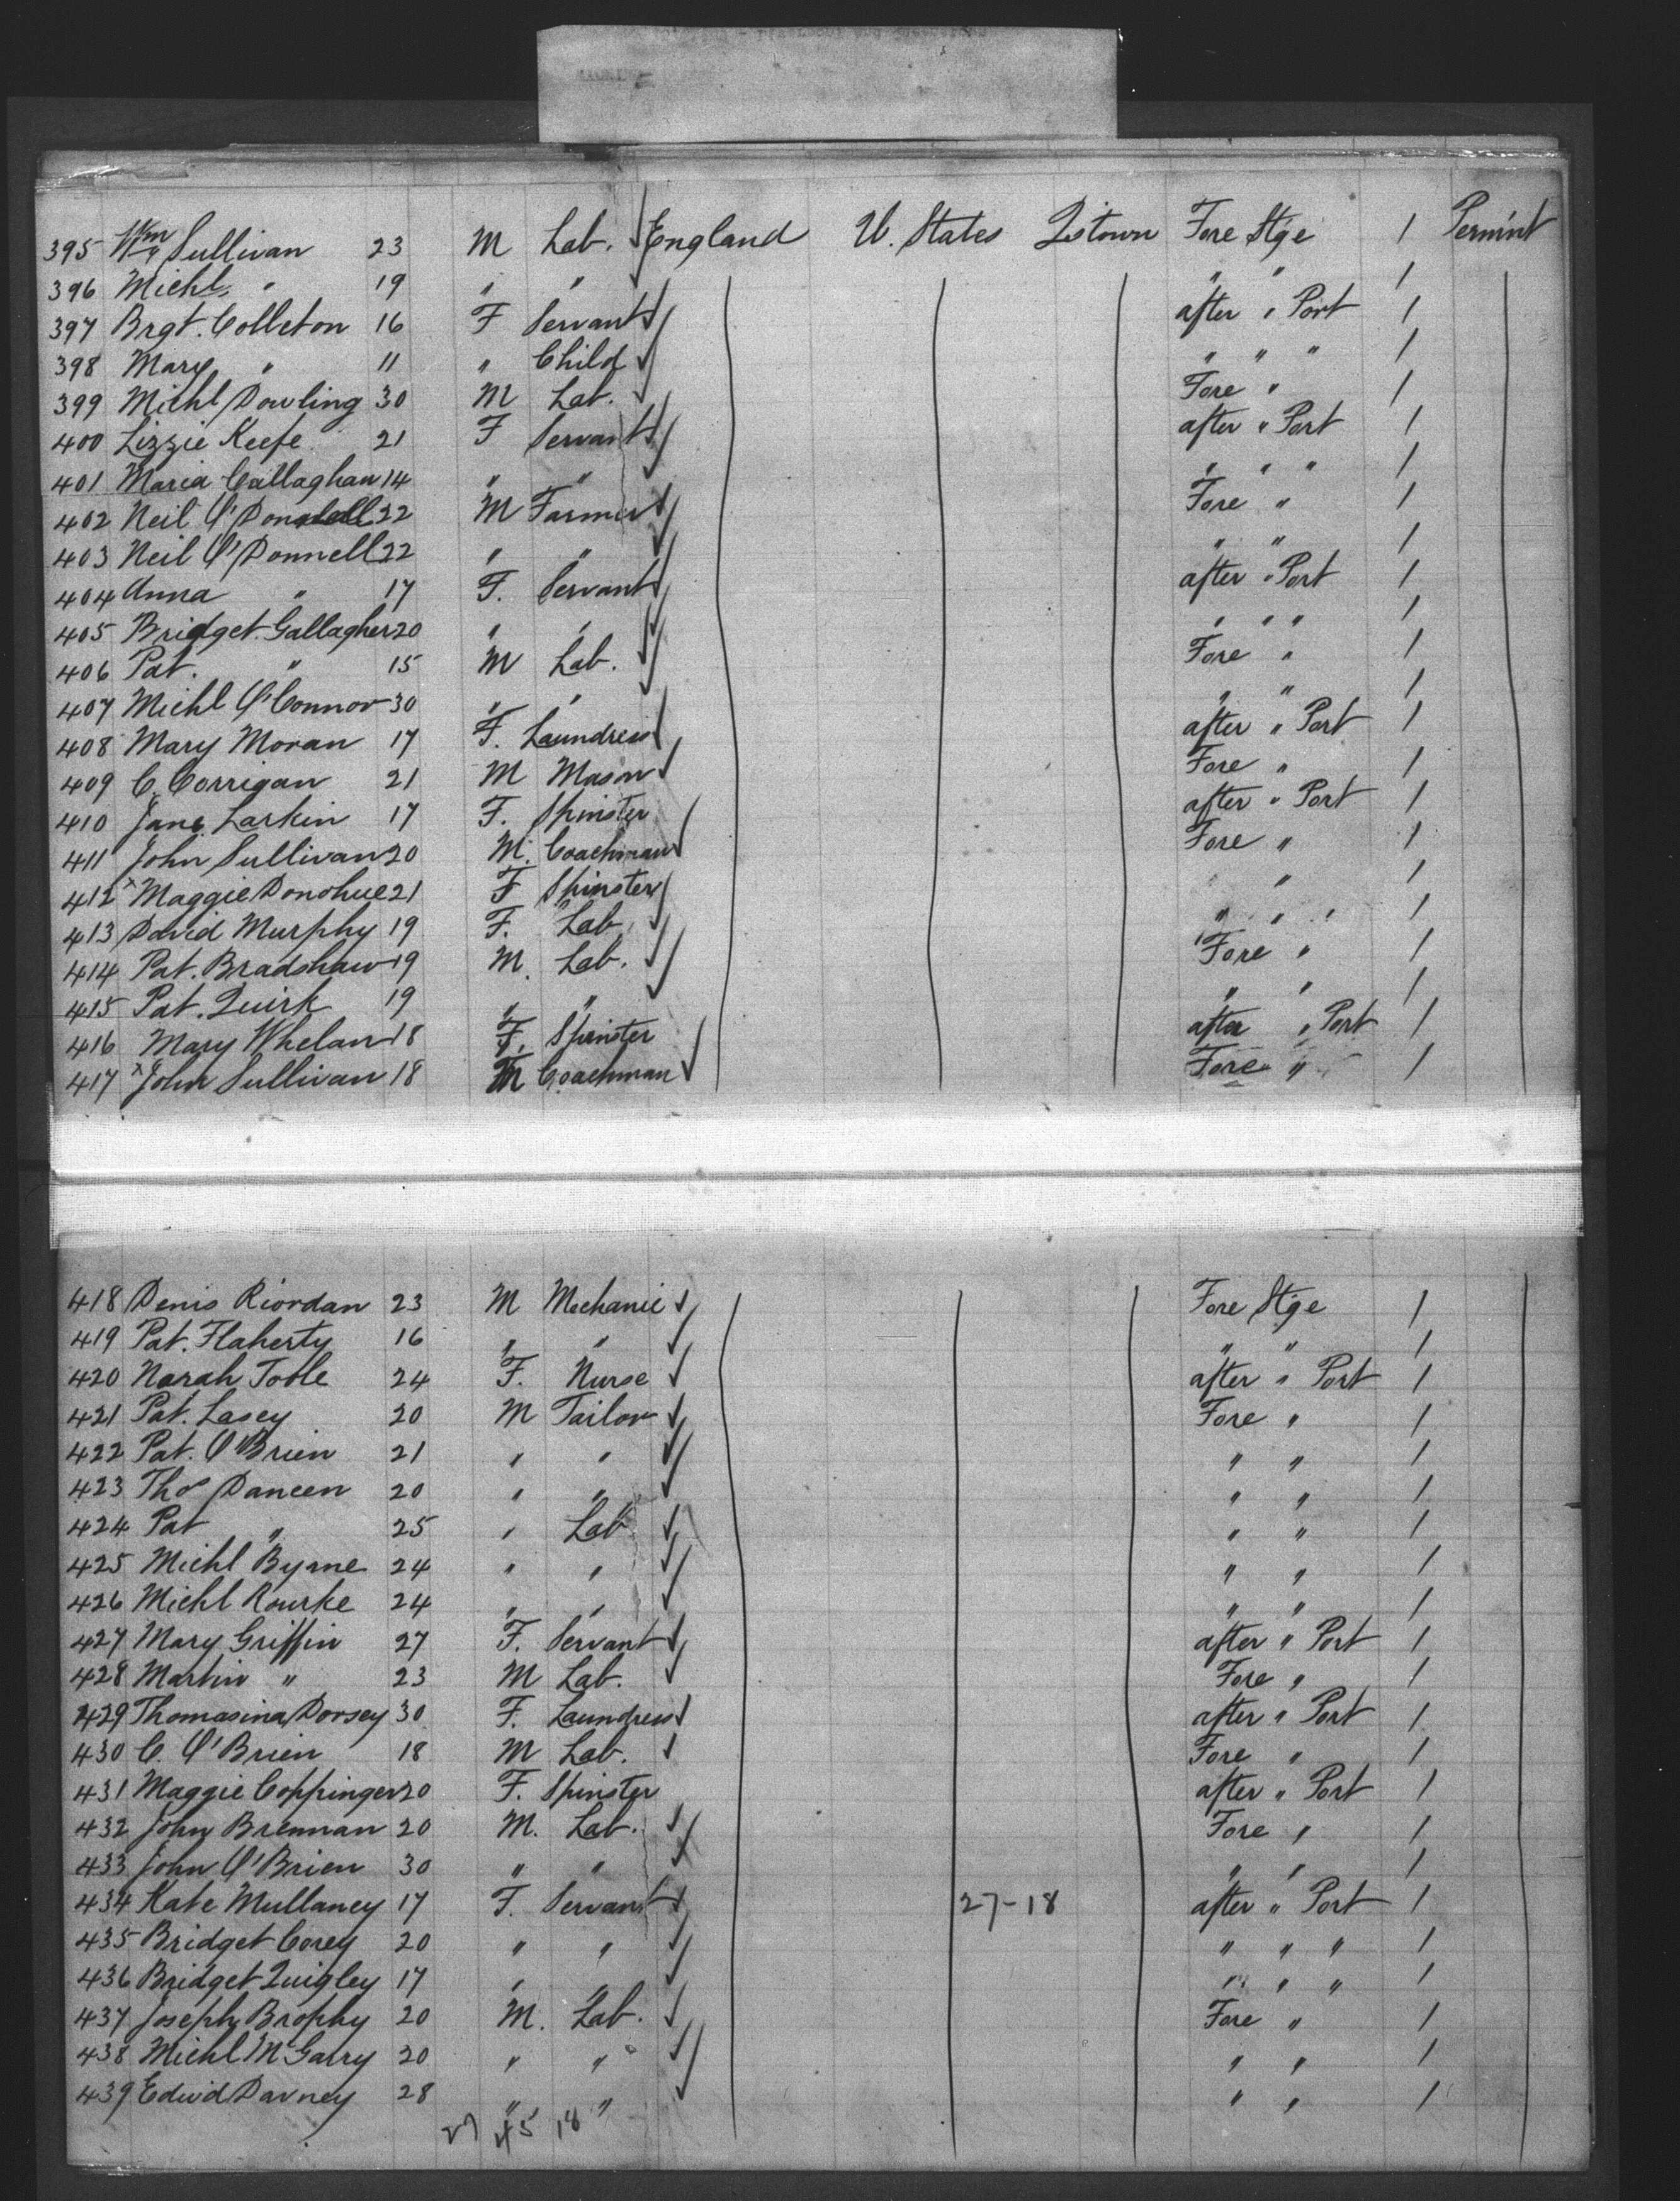 395 Wm Sullivan 23 M Lab. England U. States Qstown Fore Stge 1 Permint
396 Michl. " 19 " " " " 1
397 Brgt. Colleton 16 F Servant after " Port 1
398 Mary " 11 " Child " " " 1
399 Michl Dowling 30 M Lab. Fore " 1
400 Lizzie Keefe 21 F Servant after " Port 1
401 Maria Callaghan 14 " " " " " 1
402 Neil O'Donnell 22 M Farmer Fore " 1
403 Neil O'Donnell 22 " " " " 1
404 Anna " 17 F. Servant after " Port 1
405 Bridget Gallagher 20 " " " " " 1
406 Pat. " 15 M Lab. Fore " 1
407 Michl O'Connor 30 " " " " 1
408 Mary Moran 17 F. Laundress after " Port 1
409 C. Corrigan 21 M Mason Fore " 1
410 Jane Larkin 17 F. Spinster after " Port 1
411 John Sullivan 20 M. Coachman Fore " 1
412 x Maggie Donohue 21 F Spinster " 1
413 David Murphy 19 F. Lab " " " 1
414 Pat. Bradshaw 19 M. Lab. Fore " 1
415 Pat. Quirk 19 " " " " 1
416 Mary Whelan 18 F. Spinster after " Port 1
417 x John Sullivan 18 M Coachman Fore " 1
418 Denis Riordan 23 M Mechanic Fore Stge 1
419 Pat. Flaherty 16 " " " " 1
420 Norah Toole 24 F. Nurse after " Port 1
421 Pat. Lasey 20 M Tailor Fore " 1
422 Pat. O'Brien 21 " " " " 1
423 Thos Daneen 20 " " " " 1
424 Pat " 25 " Lab " " 1
425 Michl Byrne 24 " " " " 1
426 Michl Rourke 24 " " " " 1
427 Mary Griffin 27 F. Servant after " Port 1
428 Martin " 23 M Lab. Fore " 1
429 Thomasina Dorsey 30 F. Laundress after " Port 1
430 C. O'Brien 18 M Lab. Fore " 1
431 Maggie Coppinger 20 F. Spinster after " Port 1
432 John Brennan 20 M. Lab. Fore " 1
433 John O'Brien 30 " " " " 1
434 Kate Mullaney 17 F. Servant 27-18 after " Port 1
435 Bridget Corey 20 " " " " " 1
436 Bridget Quigley 17 " " " " " 1
437 Joseph Brophy 20 M. Lab. Fore " 1
438 Michl McGarry 20 " " " " 1
439 Edwd Davney 28 " " " " 1
27 45 18